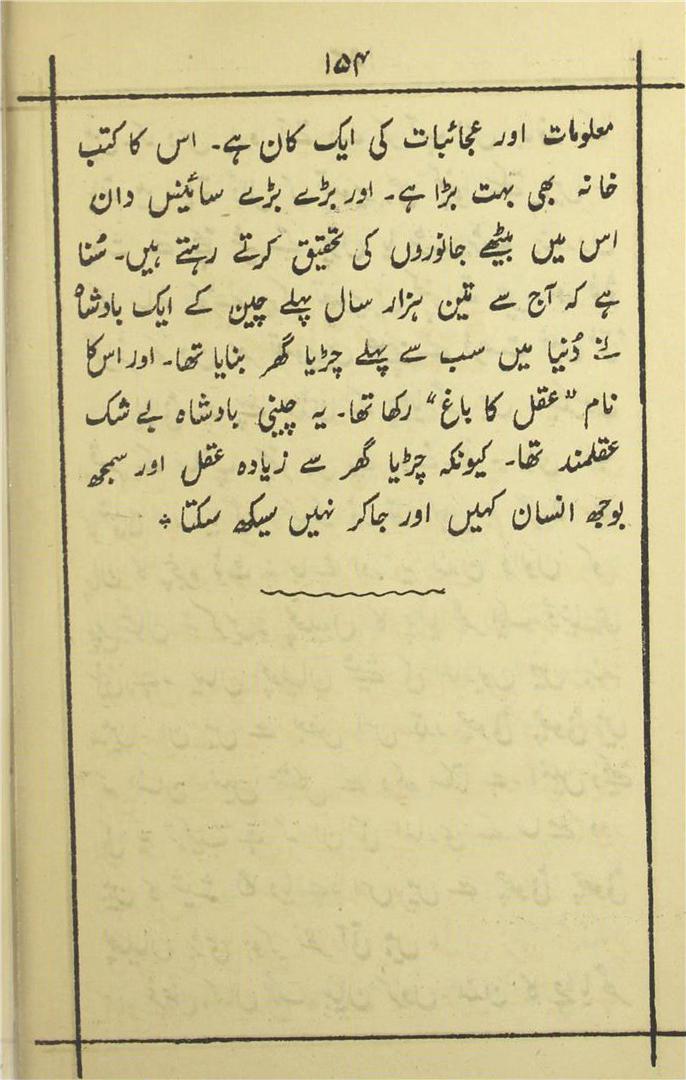 ۱۵۴
معلومات اور عجائبات کی ایک کان ہے۔ اس کا کتب
خانہ بھی بہت بڑا ہے۔ اور بڑے بڑے سائینس دان
اس میں بیٹھے جانوروں کی تحقیق کرتے رہتے ہیں۔ سُنا
ہے کہ آج سے تین ہزار سال پہلے چین کے ایک بادشاہ
نے دُنیا میں سب سے پہلے چڑیا گھر بنایا تھا۔ اور اس کا
نام "عقل کا باغ" رکھا تھا۔ یہ چینی بادشاہ بے شک
عقلمند تھا۔ کیونکہ چڑیا گھر سے زیادہ عقل اور سمجھ
بوجھ انسان کہیں اور جاکر نہیں سیکھ سکتا ؞